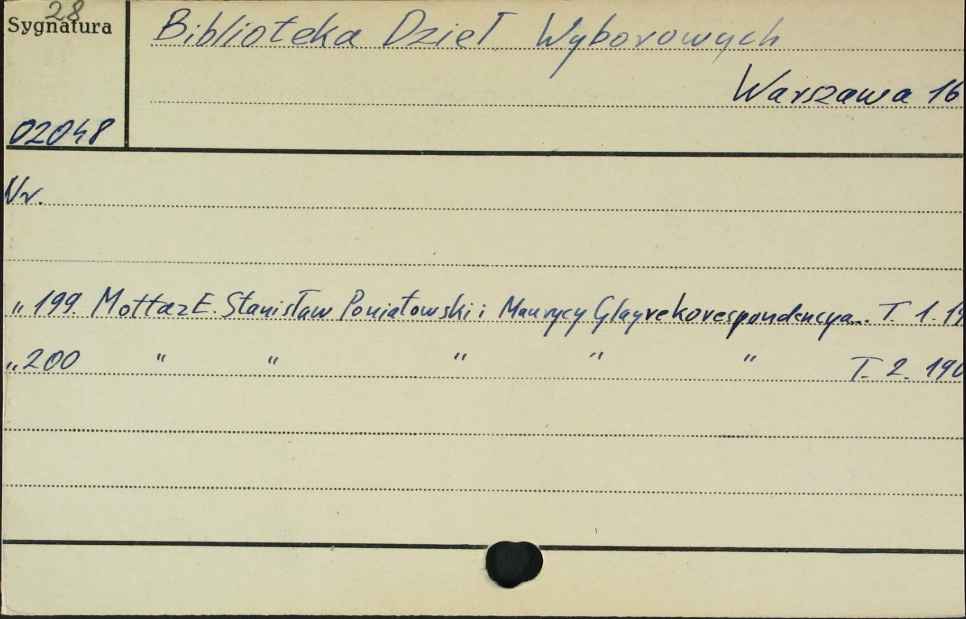 28
Sygnatura
Biblioteka Dzieł Wyborowych
Warszawa 16
02048
Nr.
„ 199. Mottaz E. Stanisław Poniatowski i Maurycy Glayre korespondencya.. T. 1. 19
„ 200 " " " " " T. 2. 190